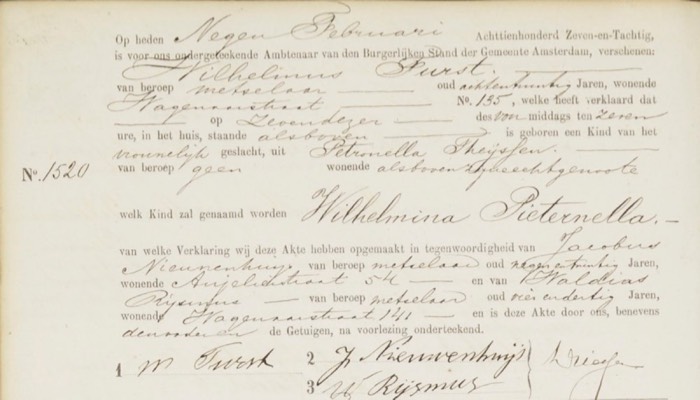 Op heden Negen Februari Achttienhonderd Zeven-en-Tachtig,
is voor ons ondergeteekende Ambtenaar van den Burgerlijken Stand der Gemeente Amsterdam, verschenen:
Wilhelmus Furst,
van beroep metselaar oud achtentwintig Jaren, wonende
Wagenaarstraat No. 135, welke heeft verklaard dat
op Zevendezer des voormiddags ten zeven
ure, in het huis, staande alsboven is geboren een Kind van het
vrouwelijk geslacht, uit Petronella Theijssen.
No. 1520
van beroep geen wonende alsboven zijne echtgenoote
welk Kind zal genaamd worden Wilhelmina Pieternella.
van welke Verklaring wij deze Akte hebben opgemaakt in tegenwoordigheid van Jacobus
Nieuwenhuijs van beroep metselaar oud negenentwintig Jaren,
wonende Anjelierstraat 54 en van Waldias
Rijsmus van beroep metselaar oud vierendertig Jaren,
wonende Wagenaarstraat 141 en is deze Akte door ons, benevens
de Getuigen, na voorlezing onderteekend.
1 W Furst 2 J Nieuwenhuijs
3 W Rijsmus